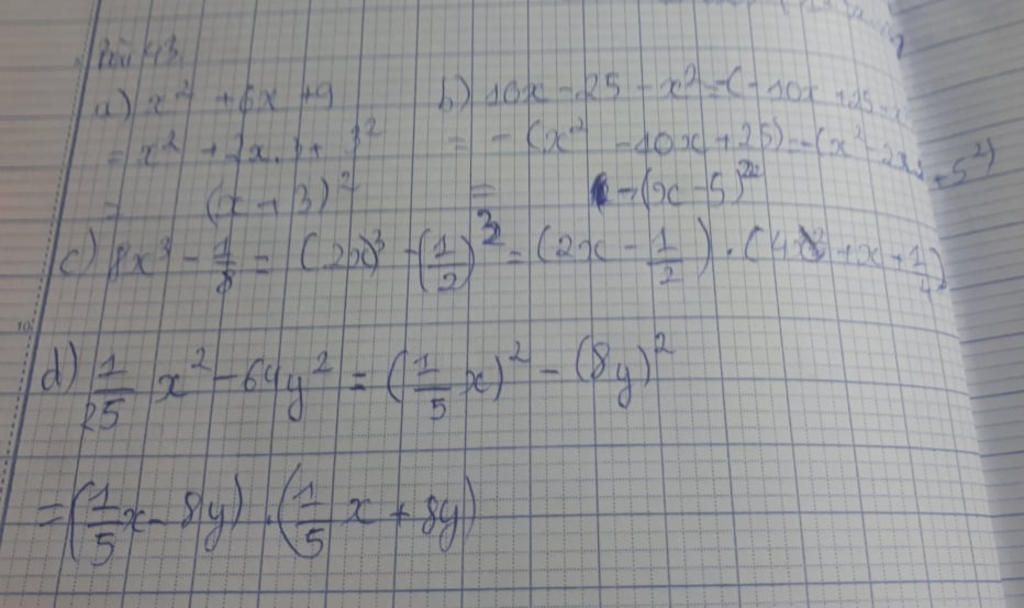 Bài 43
a) x² + 6x + 9 b) 10x - 25 - x² = -(-10x + 25
= x² + 2x.3 + 3² = -(x² - 10x + 25) = -(x² - 2x5 + 5²)
= (x + 3)² = -(x - 5)²
c) 8x³ - 1/8 = (2x)³ - (1/2)³ = (2x - 1/2) . (4x² + x + 1/4)
d) 1/25 x² - 64y² = (1/5 x)² - (8y)²
= (1/5 x - 8y) . (1/5 x + 8y)